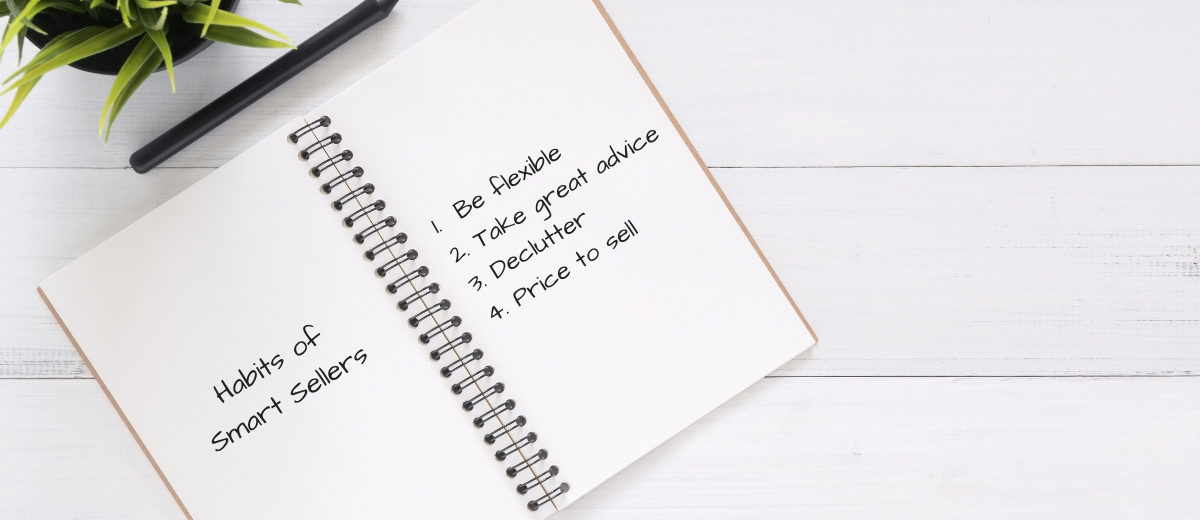 Habits of
Smart Sellers
1. Be flexible
2. Take great advice
3. Declutter
4. Price to sell